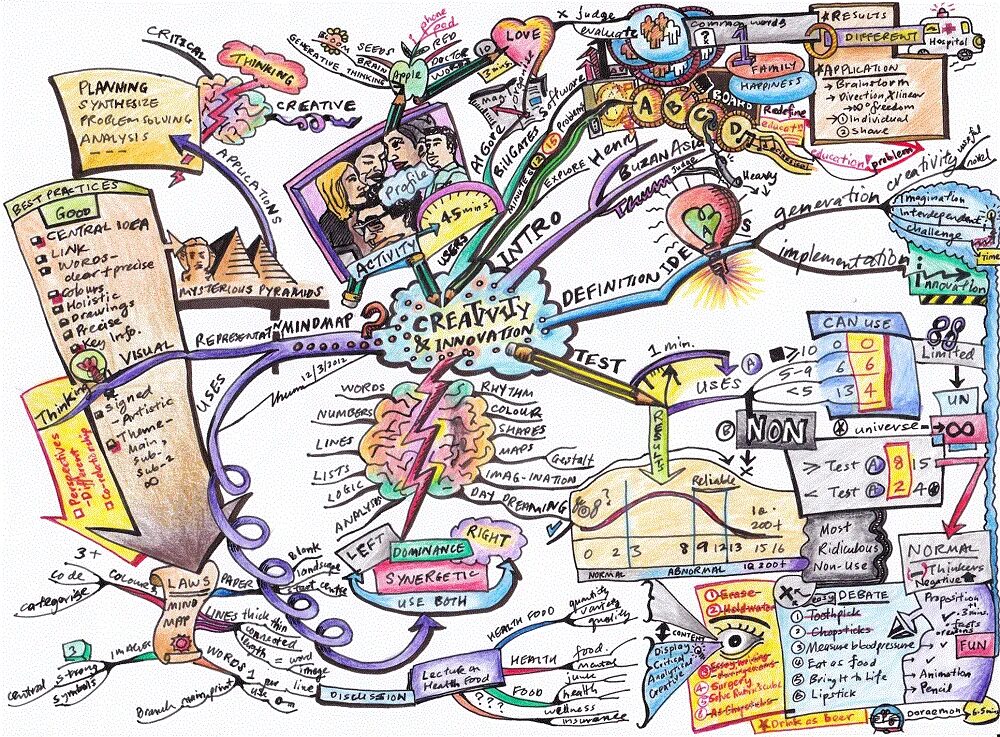 CREATIVITY
& INNOVATION
INTRO
ACTIVITY
Profile
45 mins.
USERS
Apple
GENERATIVE THINKING
BRAIN
SEEDS
phone
food
RED
DOCTOR
WORDS
10
3 mins.
LOVE
Al Gore
Bill GATES
Software
MINDSET
15
Problem
EXPLORE
Henry
x judge
evaluate
common words
?
1
DIFFERENT
Hospital
* RESULTS
FAMILY
HAPPINESS
* APPLICATION
→ Brainstorm
→ Direction, X linear
→ ∞ freedom
→ ① Individual
② Share
A
B
C
D
BOARD
Redefine
Education
problem
BUZAN ASIA
Thum
Judge
Heavy
DEFINITION
IDEAS
generation
creativity
useful
novel
Imagination
Interdependent
challenge
Time
implementation
i
Innovation
TEST
1 min.
USES
A
≥10 0 0
5-9 6 6
<5 13 4
CAN USE
Limited
UN
∞
B
NON
universe
≥ Test A 8 15
< Test A 2 4
RESULTS
Reliable
0 2 3 8 9 12 13 15 16
I.Q.
200+
NORMAL
ABNORMAL
IQ 200+
Most
Ridiculous
Non-Use
NORMAL
Thinkers
Negative
CONTENT
Display
Critical
Analytical
Creative
① Erase
② Hold water
③ Essay writing
④ Surgery
⑤ Solve Rubik's cube
⑥ As Chopsticks
* Drink as beer
X easy DEBATE
① Toothpick
② Chopsticks
③ Measure blood pressure
④ Eat as food
⑤ Bring to Life
⑥ Lipstick
Proposition
3 min.
facts
reasons
FUN
- Animation
- Pencil
Doraemon
6.5 mins
WORDS
NUMBERS
LINES
LISTS
LOGIC
ANALYSIS
RHYTHM
COLOUR
SHAPES
MAPS
Gestalt
IMAG-INATION
DAY DREAMING
LEFT
RIGHT
DOMINANCE
SYNERGETIC
USE BOTH
MINDMAP
?
12/3/2012
REPRESENTATN
VISUAL
Thinking
Perspectives
- Different
Co-relationship
MYSTERIOUS PYRAMIDS
APPLICATIONS
PLANNING
SYNTHESIZE
PROBLEM SOLVING
ANALYSIS
CRITICAL
THINKING
CREATIVE
BEST PRACTICES
GOOD
CENTRAL IDEA
LINK
WORDS-
clear + precise
Colours
Holistic
Drawings
Precise
Key info.
Designed
- Artistic
Theme-
Main,
Sub-1
Sub-2
∞
USES
LAWS
MIND
MAP
3+
code
categorise
COLOURS
3
IMAGES
central
strong
symbols
PAPER
Blank
landscape
start centre
LINES
thick thin
connected
length = word
image
WORDS
1 per line
use
Branch main, print
DISCUSSION
Lecture on
Health Food
HEALTH FOOD
quantity
variety
quality
HEALTH
food
mental
FOOD
junk
health
???
wellness
insurance